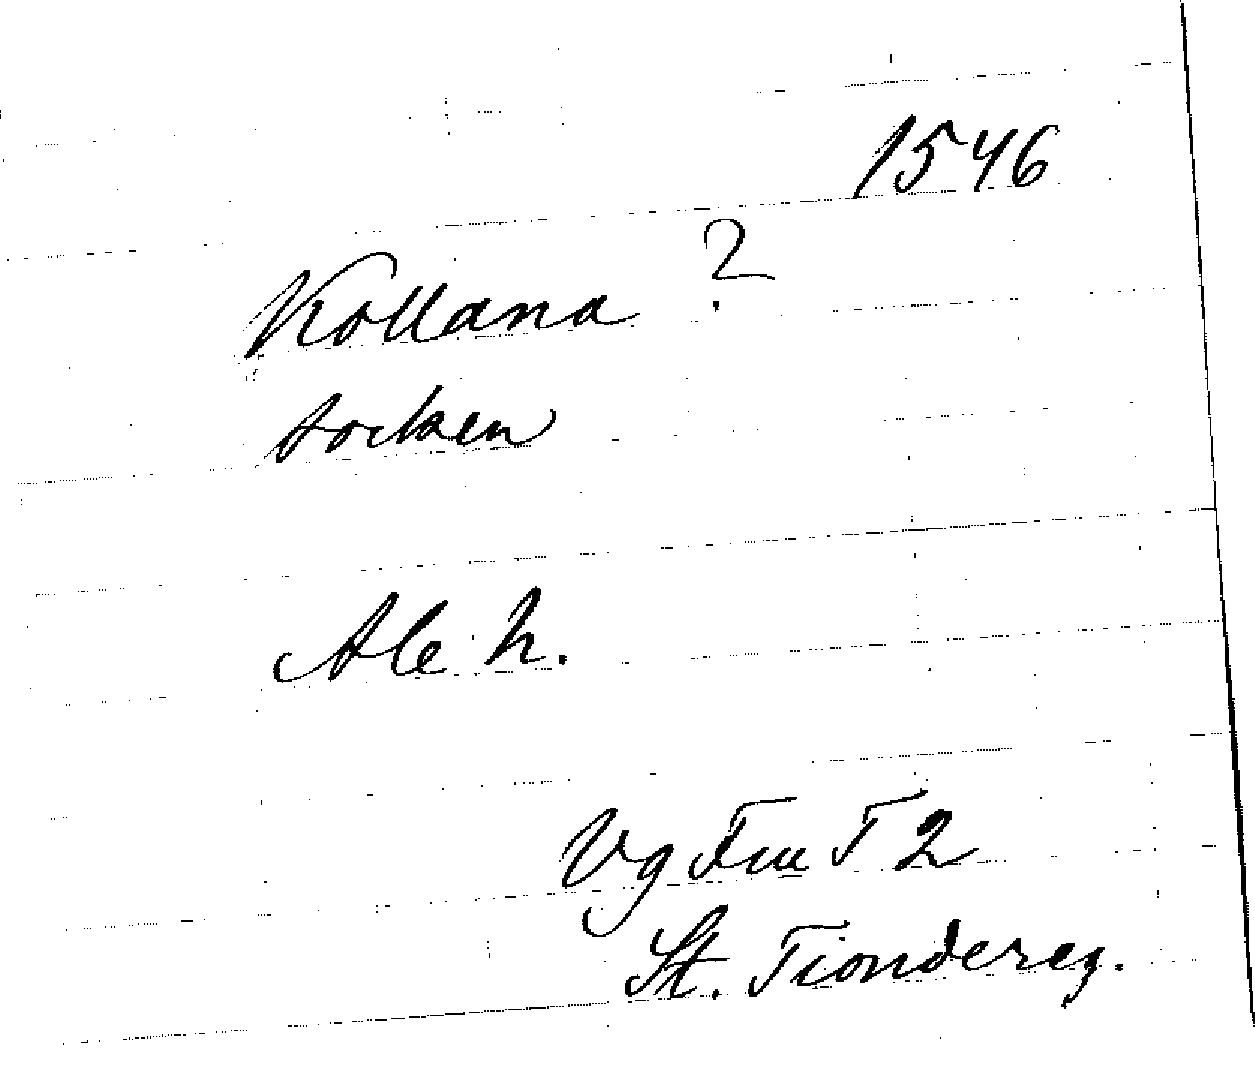 1546
Kollana ?
socken
Ale h.
Vg
St. Tiondereg.